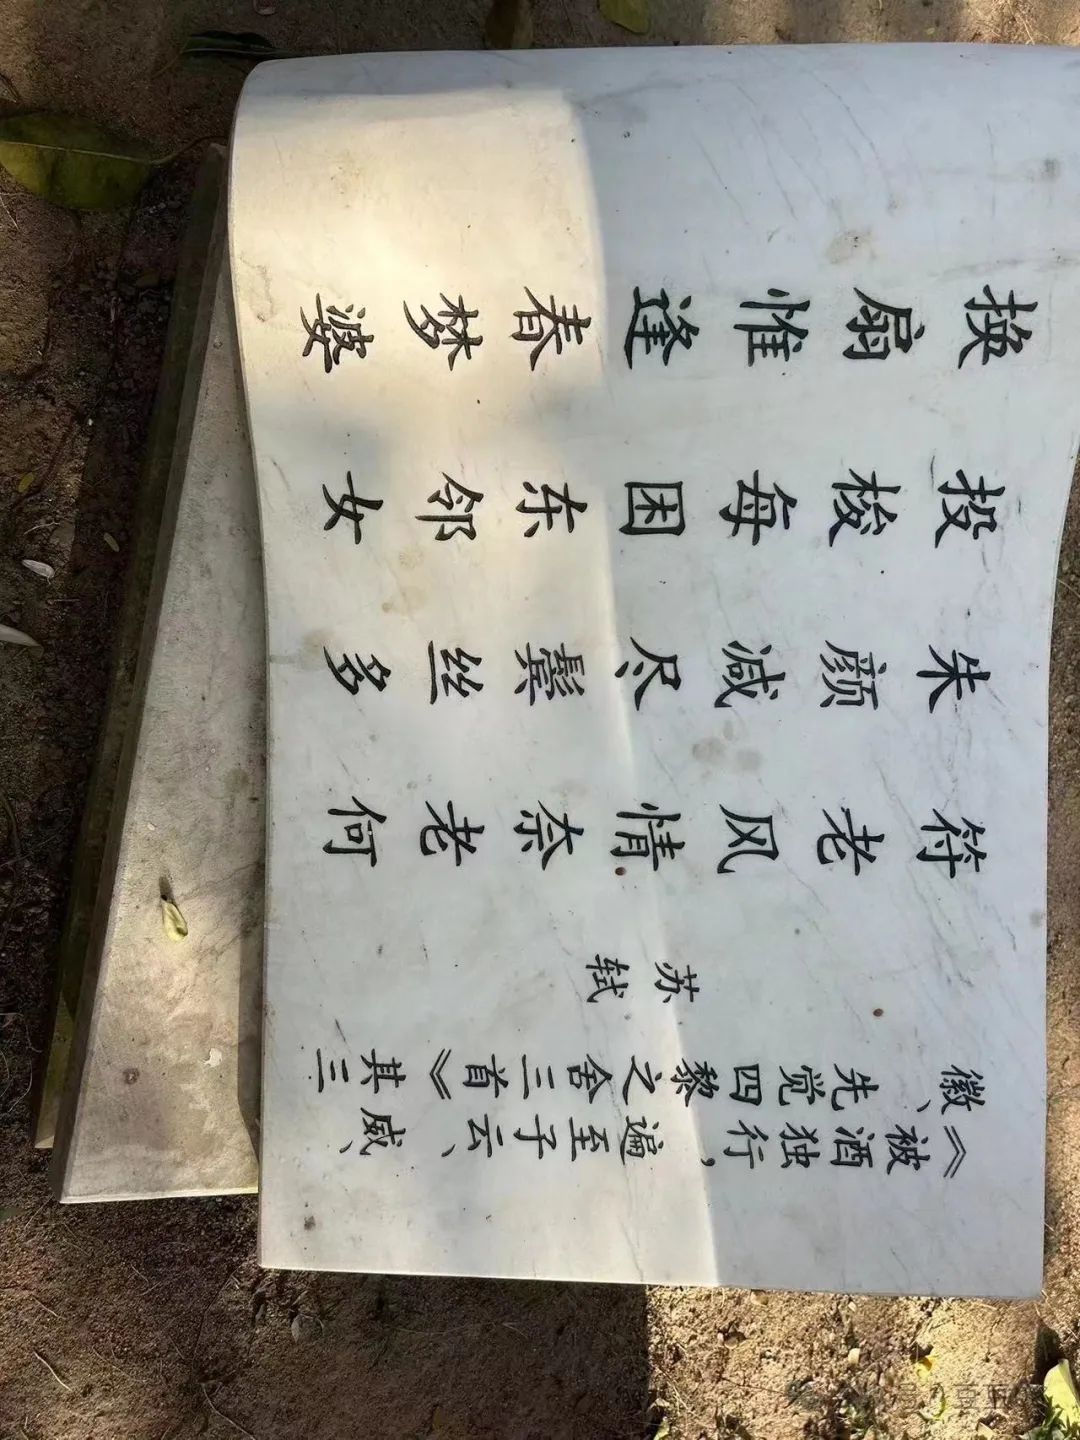 《被酒独行，遍至子云、威、
徽、先觉四黎之舍三首》其三
苏轼
符老风情奈老何
朱颜减尽鬓丝多
投梭每困东邻女
换扇惟逢春梦婆